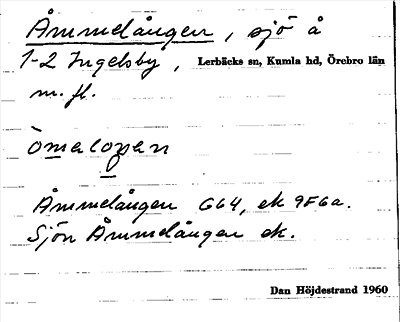 Åmmelången, sjö å
1-2 Ingelsby, Lerbäcks sn, Kumla hd, Örebro län
m. fl.
òmeloŋen
Åmmelången G64, ek 9F6a.
Sjön Åmmelången ek.
Dan Höjdestrand 1960